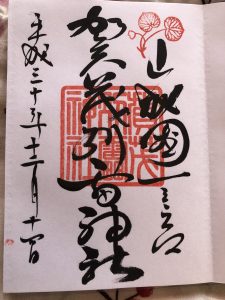 山城國一之宮
賀茂別雷神社
平成三十年十二月十四日